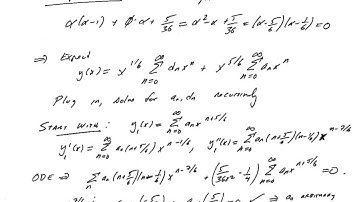 α(α-1) + 0·α + 5/36 = α² - α + 5/36 = (α - 5/6)(α - 1/6) = 0
⇒ Expect
y(x) = x^{1/6} ∑_{n=0}^{∞} d_n x^n + x^{5/6} ∑_{n=0}^{∞} a_n x^n
Plug in, solve for a_n, d_n recursively
START WITH: y_1(x) = ∑_{n=0}^{∞} a_n x^{n+5/6}
y_1'(x) = ∑_{n=0}^{∞} a_n (n+5/6) x^{n-1/6}, y_1''(x) = ∑_{n=0}^{∞} a_n (n+5/6)(n-1/6) x^{n-7/6}
ODE ⇒ ∑_n a_n (n+5/6)(n-1/6) x^{n-7/6} + (5/36x² - 1/4) ∑_{n=0}^{∞} a_n x^{n+5/6} = 0.
= 0 ✓ ⇒ a_0 arbitrary